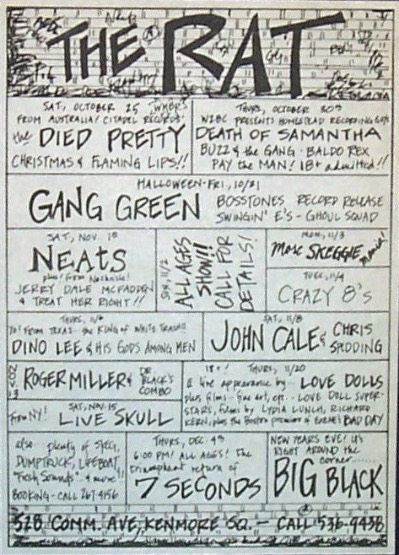 THE RAT
SAT, OCTOBER 25 WMBR'S
FROM AUSTRALIA! CITADEL RECORDS'
the DIED PRETTY
CHRISTMAS & FLAMING LIPS!!
THURS, OCTOBER 30th
WZBC PRESENTS HOMESTEAD RECORDING
DEATH OF SAMANTHA
BUZZ & the GANG · BALDO REX
PAY the MAN! 18+ admitted!!
HALLOWEEN-FRI, 10/31
GANG GREEN
BOSSTONES RECORD RELEASE
SWINGIN' E'S - GHOUL SQUAD
SAT, NOV. 1st
NEATS
plus! from Nashville!
JERRY DALE MCFADDEN
& TREAT HER RIGHT!!
SUN, 11/2
ALL AGES
SHOW!!
CALL FOR
DETAILS!
MON, 11/3
More SKEGGIE mania!
TUES, 11/4
CRAZY 8's
THURS, 11/6
Yo! FROM TEXAS - the KING of WHITE TRASH!!
DINO LEE & HIS GODS AMONG MEN
SAT, 11/8
JOHN CALE & CHRIS
SPEDDING
ROGER MILLER & DR.
BLACK'S
COMBO
SAT, NOV. 15
from NY! LIVE SKULL
18+! THURS, 11/20
a live appearance by... LOVE DOLLS
plus films - fine art, etc. - LOVE DOLL SUPER-
STARS, films by LYDIA LUNCH, RICHARD
KERN, plus the Boston premiere of BAD DAY
also plenty of
DUMPTRUCK, LIFEBOAT
"Fresh Sounds" & more!!
BOOKING - CALL 267-4156
THURS, DEC. 4th
6:00 PM! ALL AGES! the
triumphant return of
7 SECONDS
NEW YEARS EVE! it's
RIGHT AROUND the
corner......
BIG BLACK
528 COMM. AVE, KENMORE SQ. - CALL 536-9438